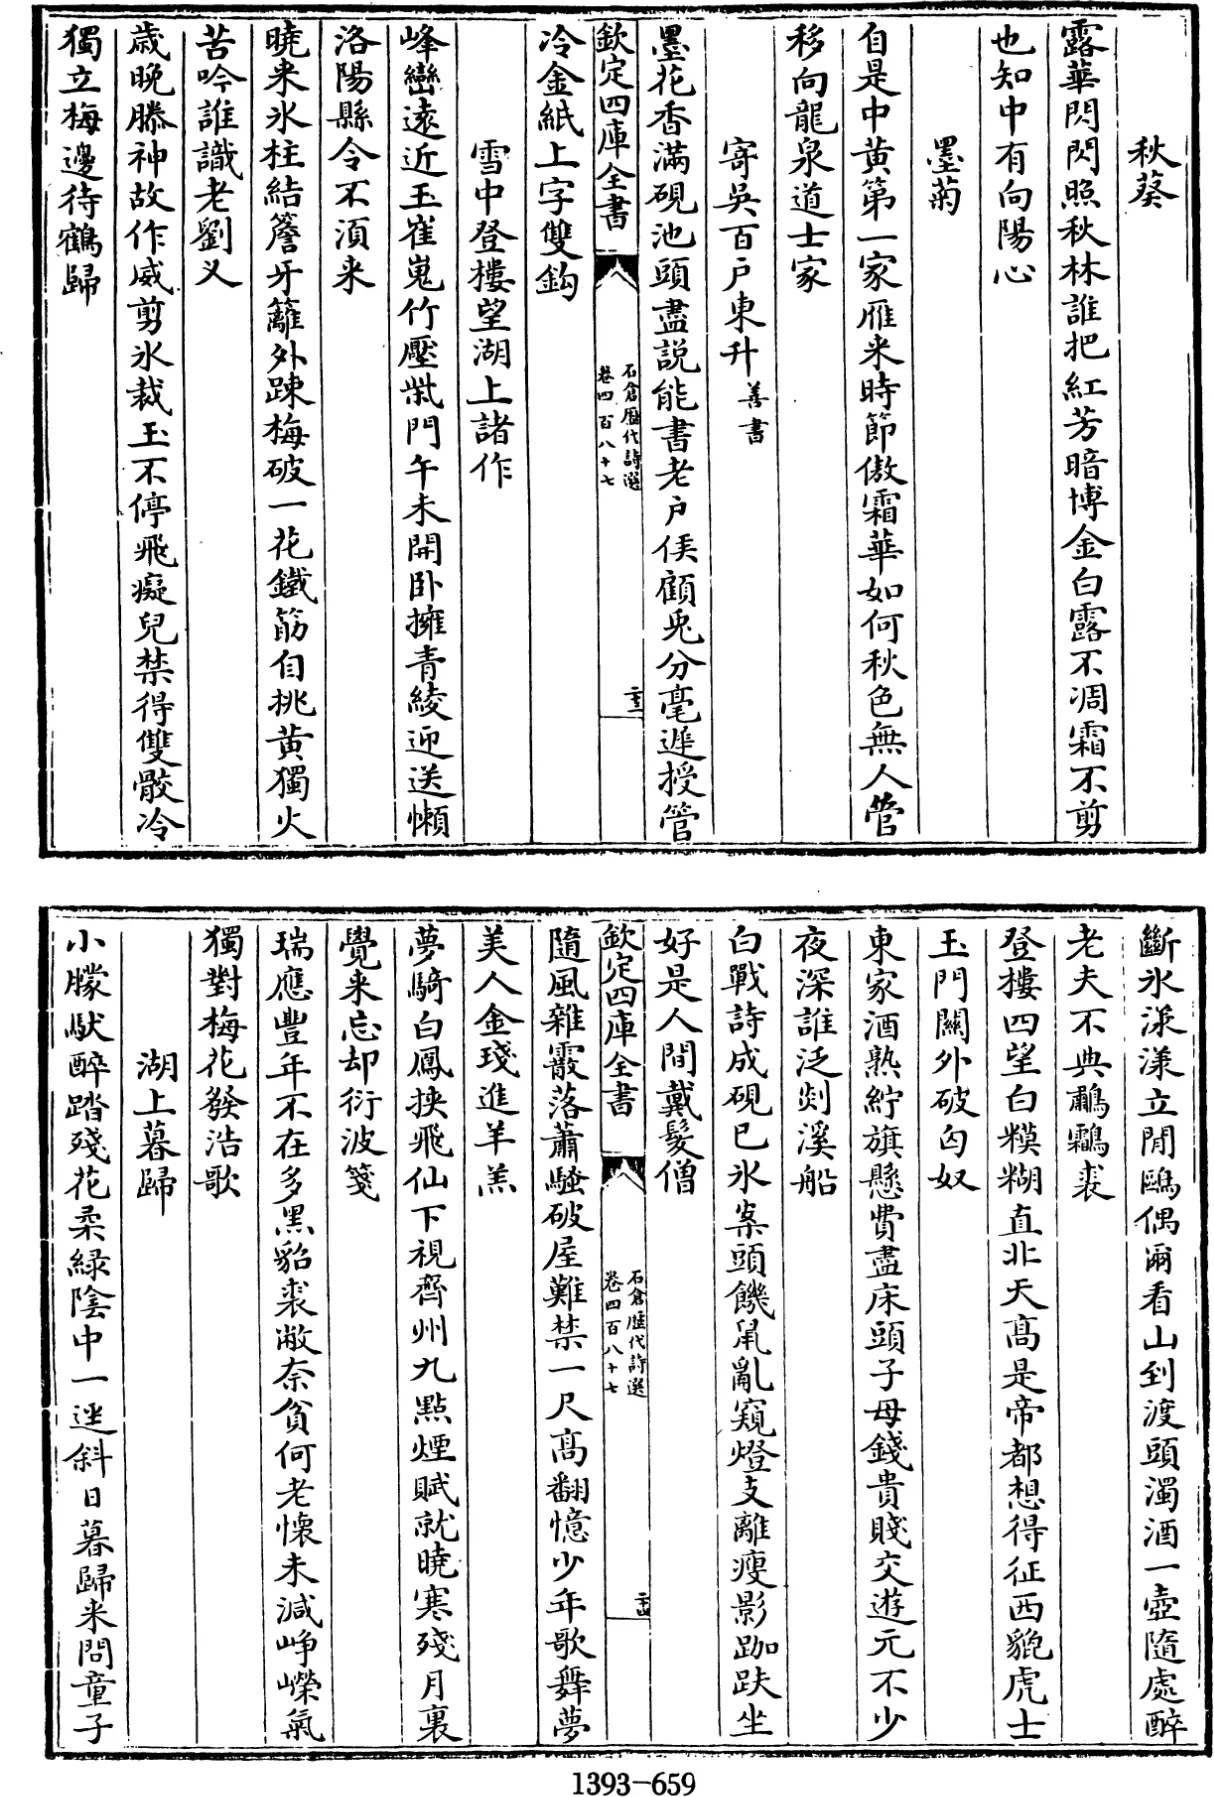 秋葵
露華閃閃照秋林誰把紅芳暗博金白露不凋霜不剪
也知中有向陽心
墨菊
自是中黄第一家雁来時節傲霜華如何秋色無人管
移向龍泉道士家
寄吳百户東升善書
墨花香滿硯池頭盡説能書老户侯顧兎分毫遲授管
欽定四庫全書
石倉歴代詩選
卷四百八十七
二十三
冷金紙上字雙鈎
雪中登樓望湖上諸作
峰巒遠近玉崔嵬竹壓柴門午未開卧擁青綾迎送懶
洛陽縣令不須来
曉来氷柱結簷牙籬外踈梅破一花鐵筯自挑黄獨火
苦吟誰識老劉乂
歳晚滕神故作威剪氷裁玉不停飛癡兒禁得雙骹冷
獨立梅邊待鶴歸
斷氷漾漾立閒鷗偶爾看山到渡頭濁酒一壺隨處醉
老夫不典鷫鸘裘
登樓四望白糢糊直北天髙是帝都想得征西貔虎士
玉門關外破匈奴
東家酒熟紵旗懸費盡床頭子母錢貴賤交遊元不少
夜深誰泛剡溪船
白戰詩成硯已氷案頭饑鼠亂窺燈支離瘦影跏趺坐
好是人間戴髪僧
欽定四庫全書
石倉歴代詩選
卷四百八十七
二十四
隨風雜霰落蕭騷破屋難禁一尺髙翻憶少年歌舞夢
美人金琖進羊羔
夢騎白鳳挾飛仙下視齊州九點煙賦就曉寒殘月裏
覺来忘却衍波箋
瑞應豐年不在多黑貂裘敝奈貧何老懐未減崢嶸氣
獨對梅花發浩歌
湖上暮歸
小艨馱醉踏殘花柔緑陰中一逕斜日暮歸来問童子
1393-659